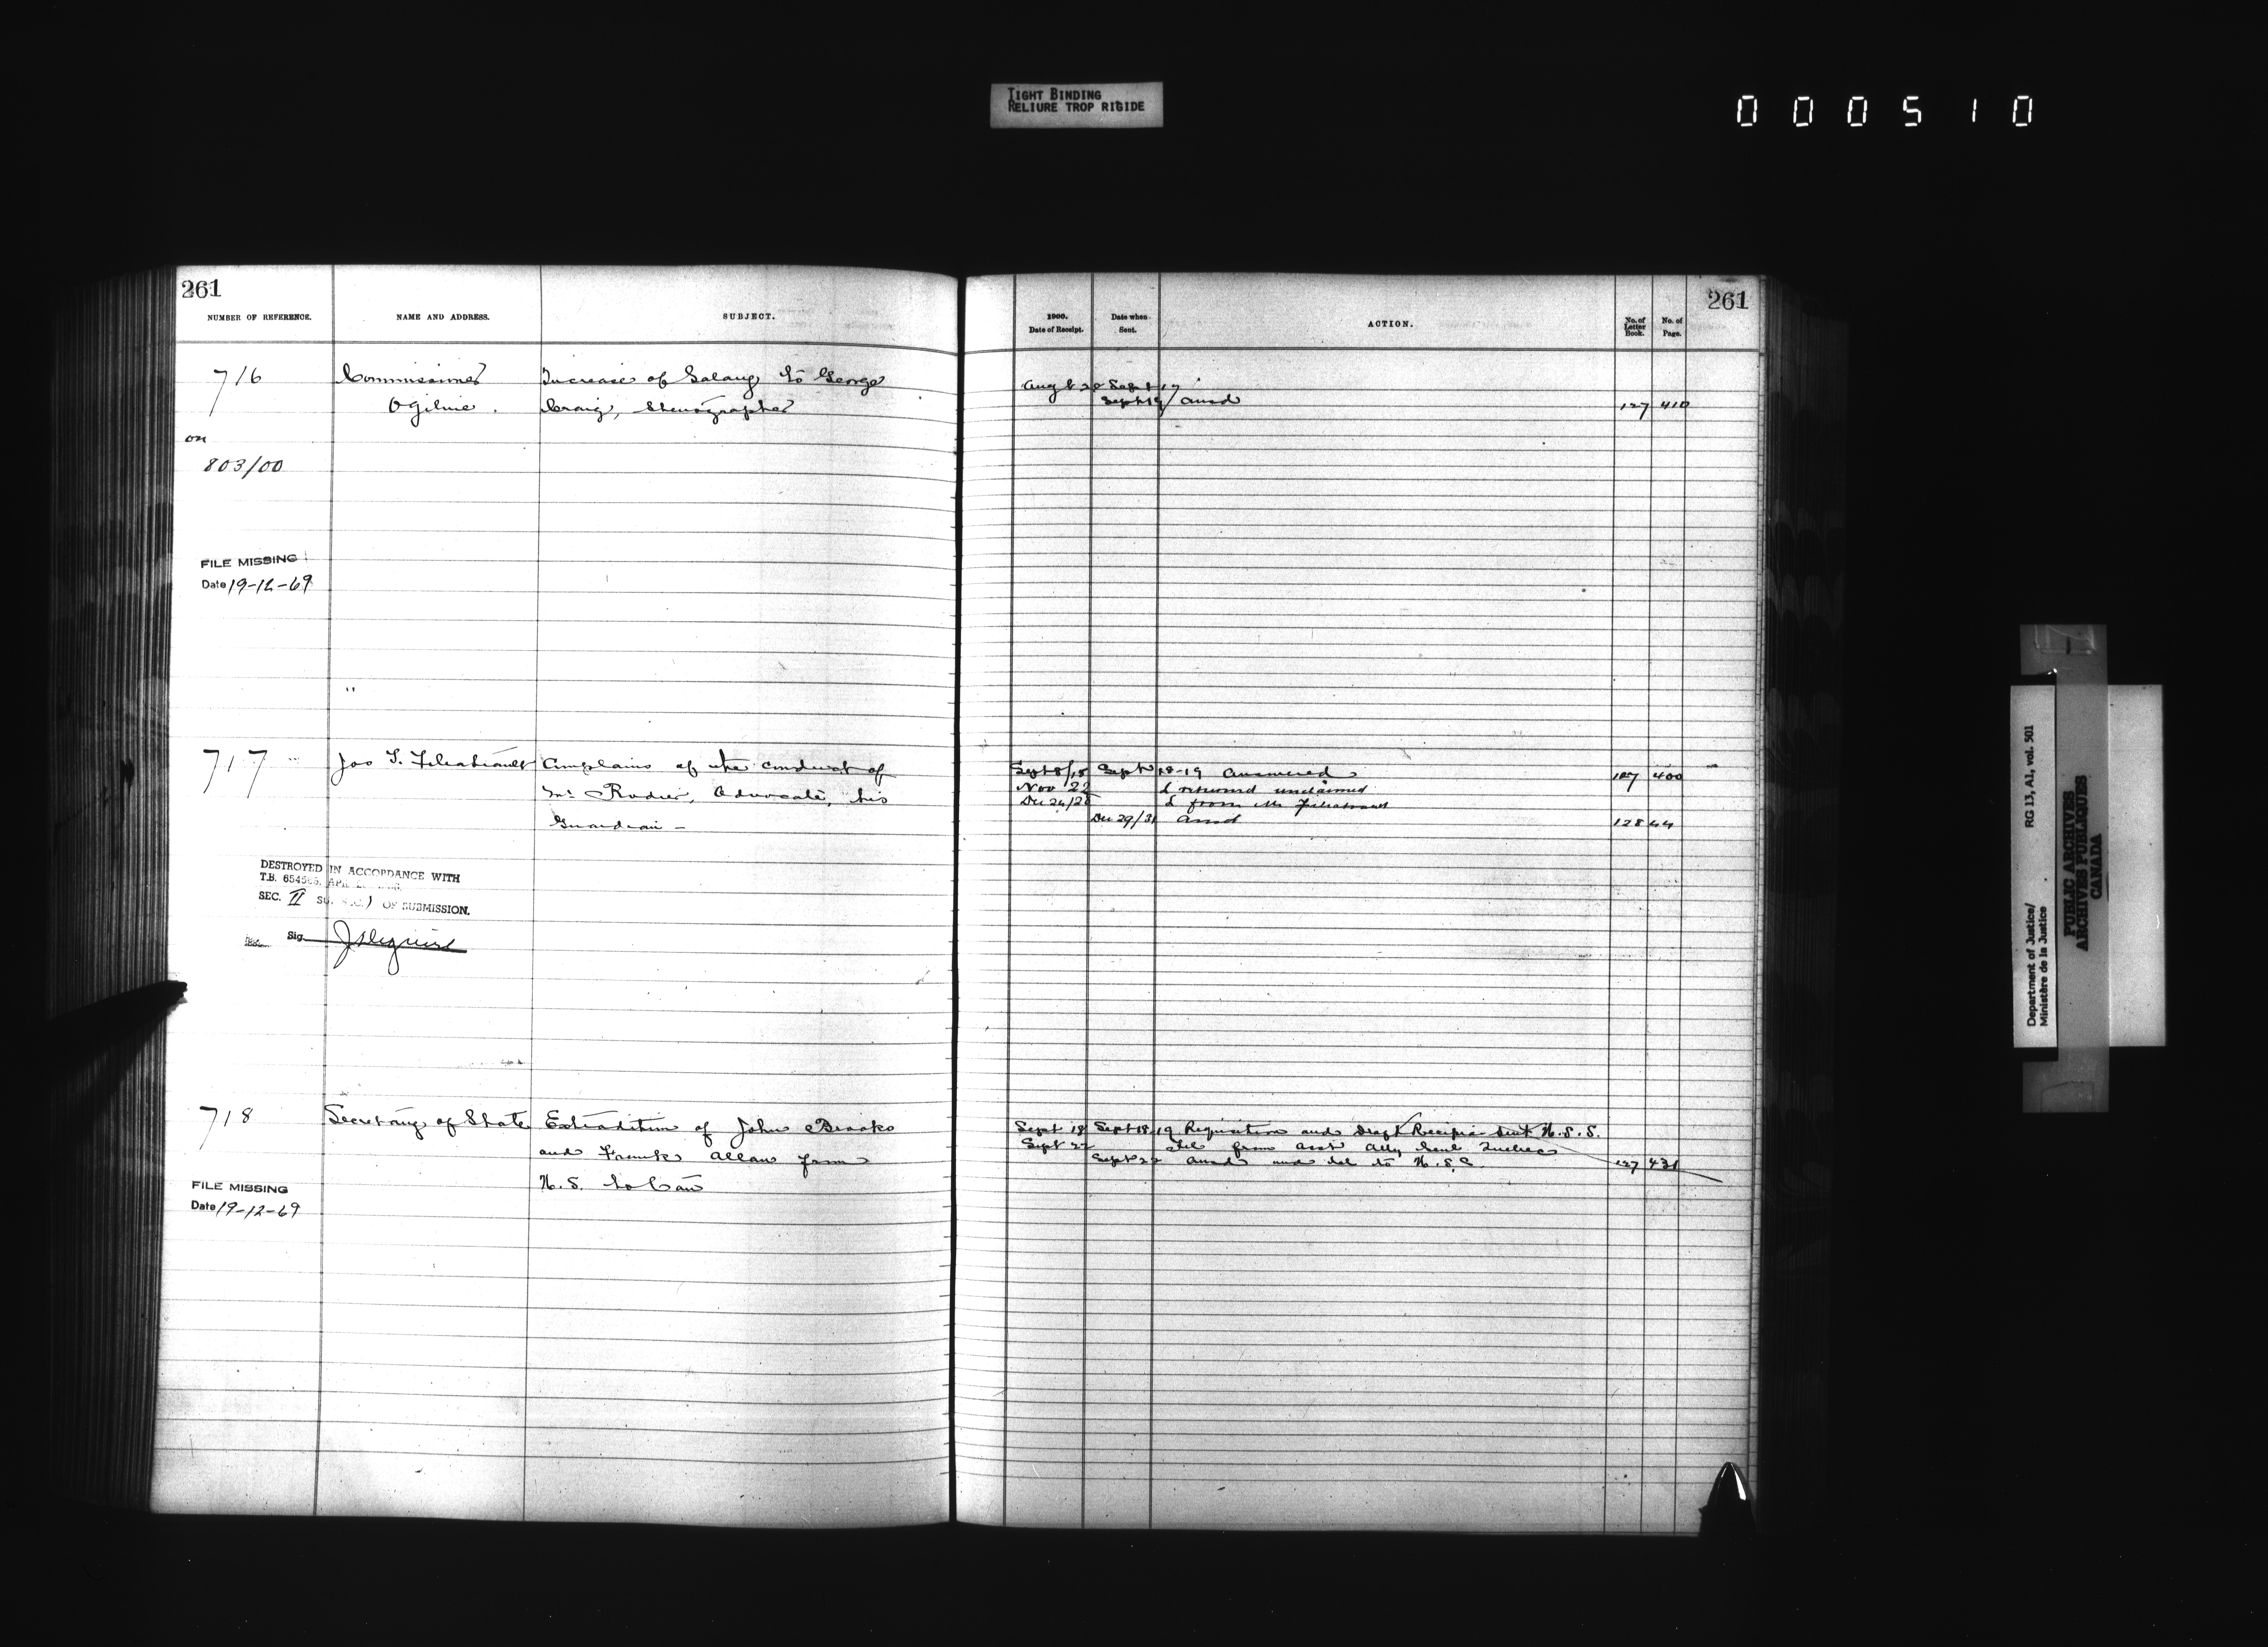 TIGHT BINDING
RELIURE TROP RIGIDE
000510
261
261
NUMBER OF REFERENCE.
NAME AND ADDRESS.
SUBJECT.
1900.
Date of Receipt.
Date when
Sent.
ACTION.
No. of
Letter
Book.
No. of
Page.
716
Commissioner
Increase of Salary to George
Sept 19
Ogilvie.
Craig, Stenographer
Sept 19 ansd
127 410
on
803/00
FILE MISSING
Date 19-12-69
717
Jos Filiatrault
Complains of the conduct of
Sept 8/18 Sept 18-19 Answered
127 400
Mr Rodier, Advocate, his
Nov 22 L returned unclaimed
Dec 26/28 L from Mr Filiatrault
Guardian -
Dec 29/31 ansd
128 44
DESTROYED IN ACCORDANCE WITH
T.B.
SEC. II OF SUBMISSION.
Sig.
718
Secretary of State
Extradition of John Brooks
Sept 18 Sept 18-19 Requisition and Draft Recipias sent U.S.S.
and Frank Allan from
Sept 22 Tel from asst Atty Genl Quebec
Sept 22 ansd and tel to U.S.S.
127 431
U.S. to Can
FILE MISSING
Date 19-12-69
Department of Justice/
Ministère de la Justice
RG 13, A1, vol. 501
PUBLIC ARCHIVES
ARCHIVES PUBLIQUES
CANADA